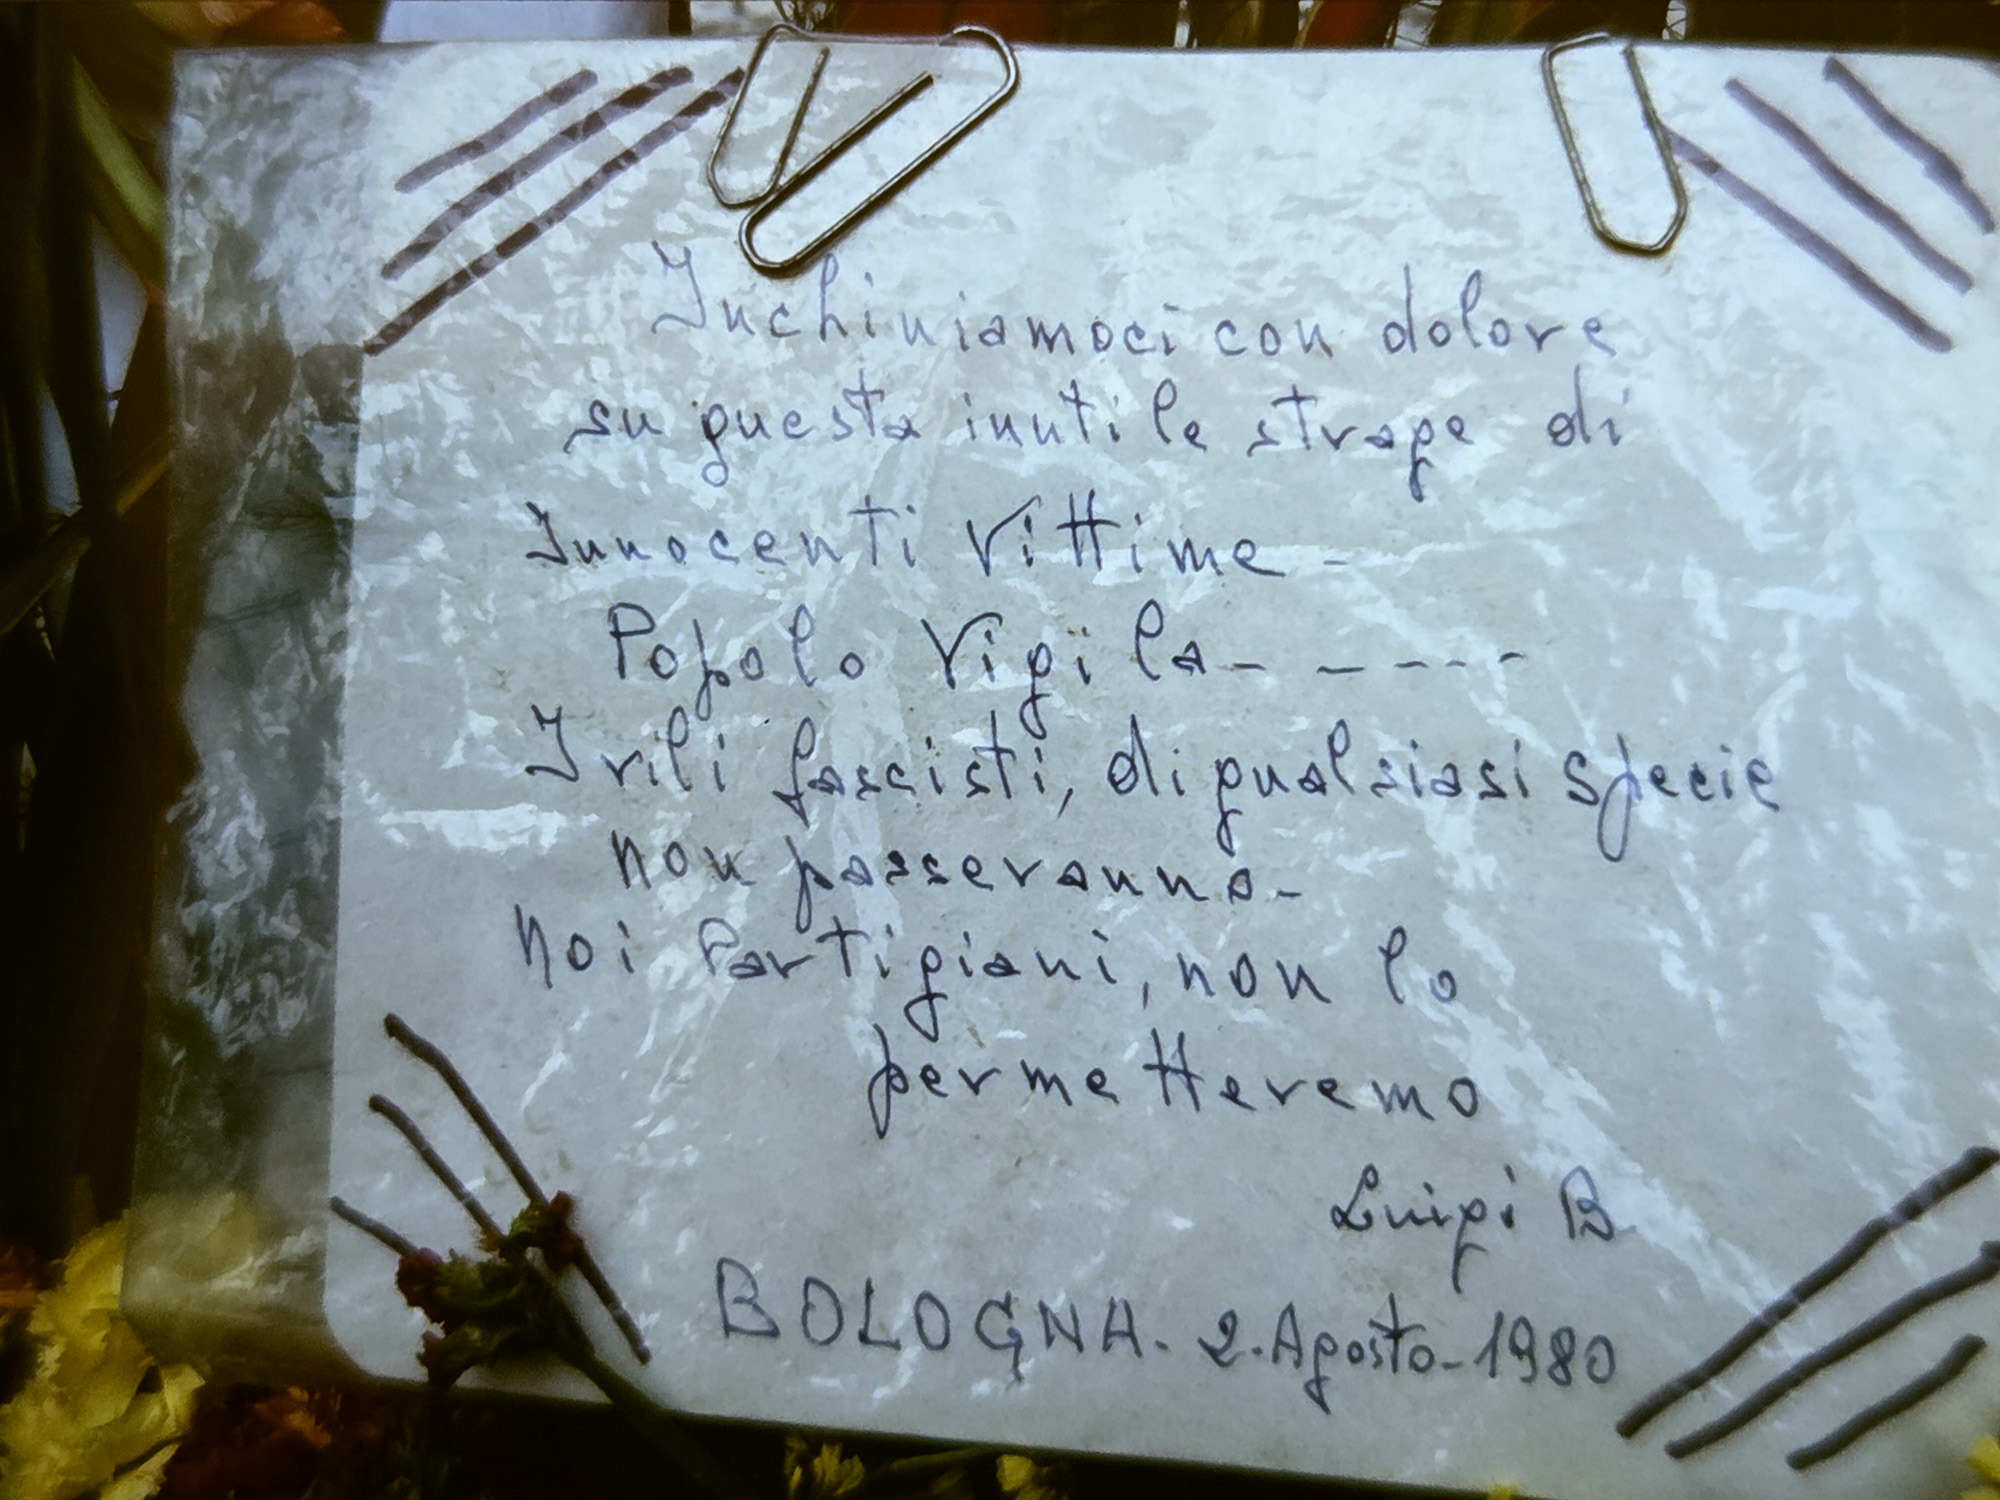 Inchiniamoci con dolore
su questa inutile strage di
Innocenti Vittime -
Popolo Vigila - - - - - -
I vili fascisti, di qualsiasi specie
non passeranno -
Noi Partigiani, non lo
permetteremo
Luigi B
BOLOGNA. 2. Agosto - 1980